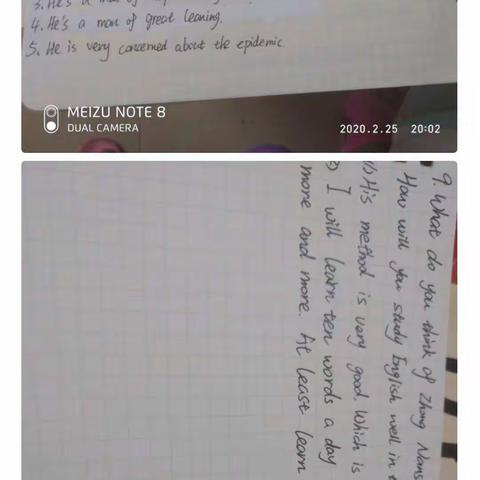 3. He's a man of
4. He's a man of great leaning.
5. He is very concerned about the epidemic.
MEIZU NOTE 8
DUAL CAMERA
2020.2.25 20:02
9. What do you think of Zhong Nans
How will you study English well in
His method is very good. Which is
I will learn ten words a day
more and more. At least learn